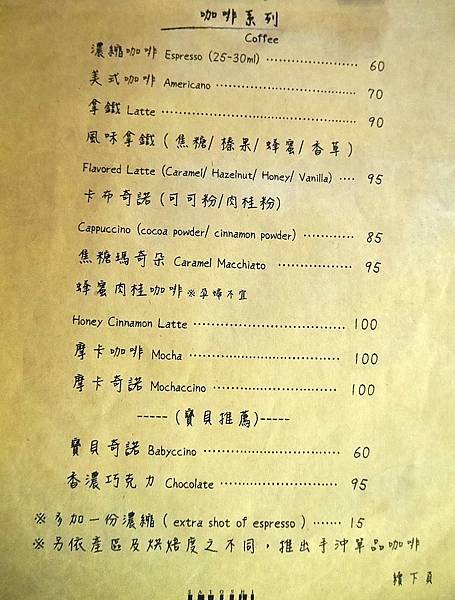 咖啡系列
Coffee
濃縮咖啡 Espresso (25-30ml) ........................ 60
美式咖啡 Americano ................................... 70
拿鐵 Latte ................................................ 90
風味拿鐵 (焦糖/榛果/蜂蜜/香草)
Flavored Latte (Caramel/ Hazelnut/ Honey/ Vanilla) .... 95
卡布奇諾 (可可粉/肉桂粉)
Cappuccino (cocoa powder/ cinnamon powder) ............. 85
焦糖瑪奇朵 Caramel Macchiato .................. 95
蜂蜜肉桂咖啡 ※孕婦不宜
Honey Cinnamon Latte .................................... 100
摩卡咖啡 Mocha ........................................ 100
摩卡奇諾 Mochaccino ................................. 100
----- (寶貝推薦)-----
寶貝奇諾 Babyccino .................................... 60
香濃巧克力 Chocolate ................................ 95
※多加一份濃縮 ( extra shot of espresso ) ....... 15
※另依產區及烘焙度之不同，推出手沖單品咖啡
續下頁
SATOSHI